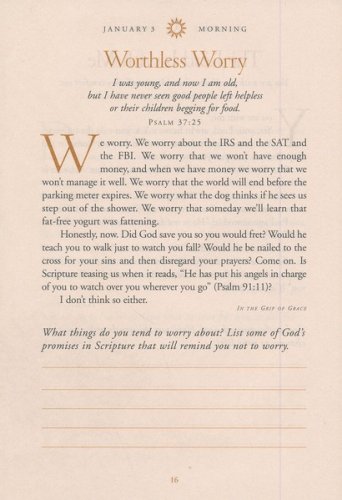 JANUARY 3 MORNING
Worthless Worry
I was young, and now I am old,
but I have never seen good people left helpless
or their children begging for food.
PSALM 37:25
We worry. We worry about the IRS and the SAT and
the FBI. We worry that we won't have enough
money, and when we have money we worry that we
won't manage it well. We worry that the world will end before the
parking meter expires. We worry what the dog thinks if he sees us
step out of the shower. We worry that someday we'll learn that
fat-free yogurt was fattening.
Honestly, now. Did God save you so you would fret? Would he
teach you to walk just to watch you fall? Would he be nailed to the
cross for your sins and then disregard your prayers? Come on. Is
Scripture teasing us when it reads, "He has put his angels in charge
of you to watch over you wherever you go" (Psalm 91:11)?
I don't think so either.
IN THE GRIP OF GRACE
What things do you tend to worry about? List some of God's
promises in Scripture that will remind you not to worry.
16